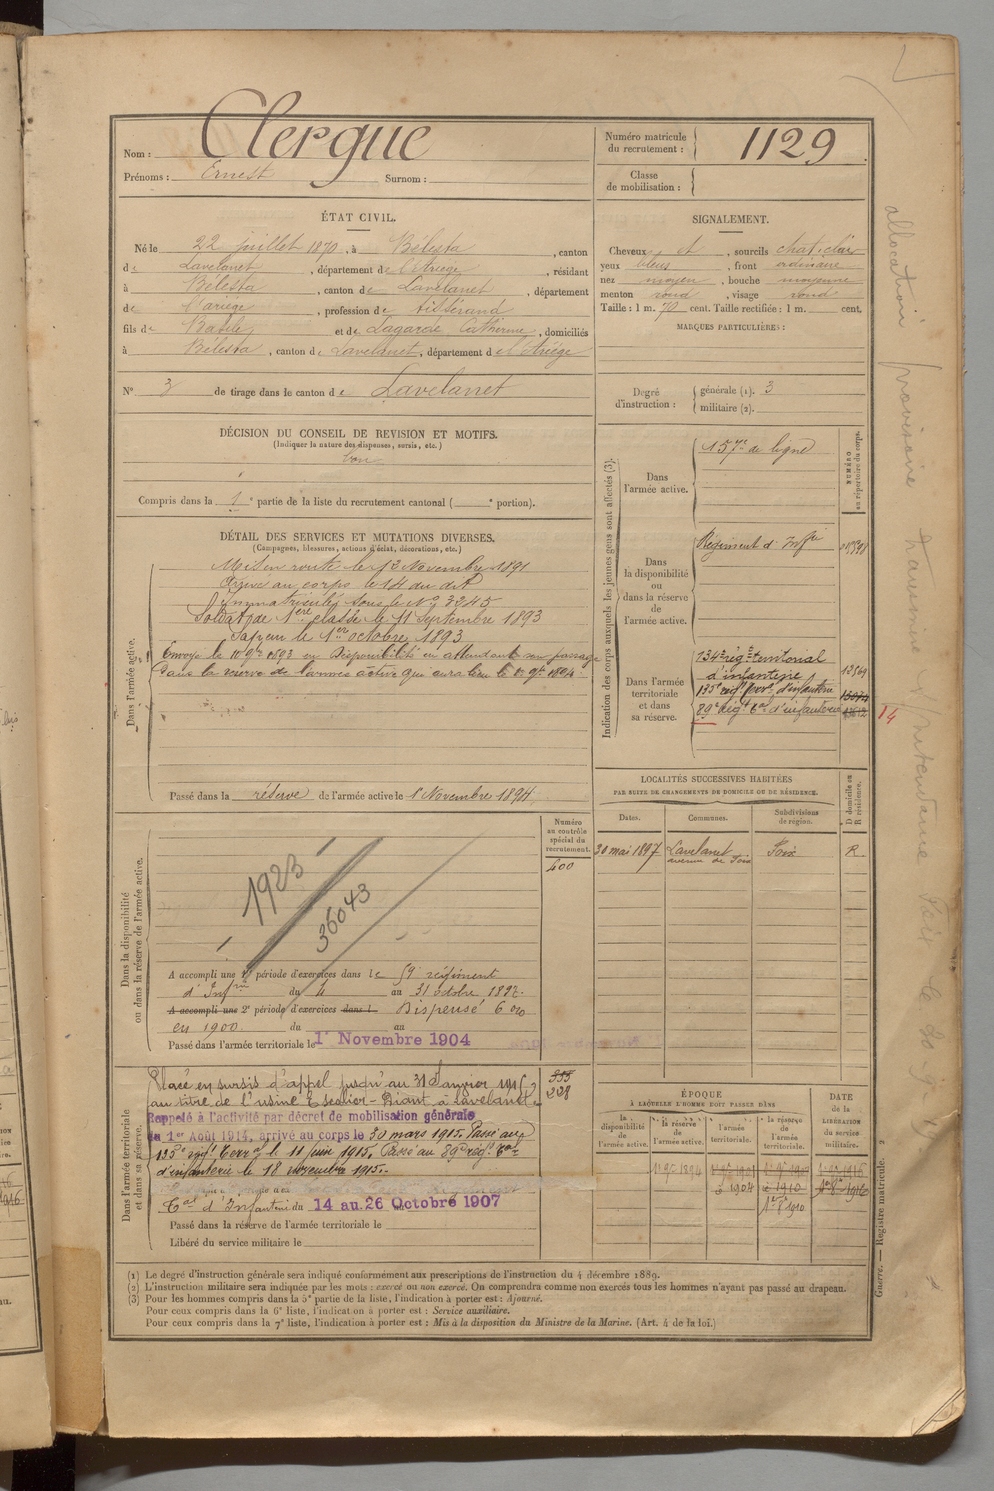 Nom : Clergue
Prénoms : Ernest Surnom :
Numéro matricule du recrutement : 1129
Classe de mobilisation :
ÉTAT CIVIL.
Né le 22 juillet 1870, à Bélesta, canton
de Lavelanet, département de l'Ariège, résidant
à Bélesta, canton de Lavelanet, département
de l'Ariège, profession de tisserand
fils de Basile et de Lagarde Catherine, domiciliés
à Bélesta, canton de Lavelanet, département de l'Ariège
N° 3 de tirage dans le canton de Lavelanet
SIGNALEMENT.
Cheveux et, sourcils chat. clair
yeux bleus, front ordinaire
nez moyen, bouche moyenne
menton rond, visage rond
Taille : 1 m. 70 cent. Taille rectifiée : 1 m. cent.
MARQUES PARTICULIÈRES :
Degré d'instruction : générale (1). 3
militaire (2).
DÉCISION DU CONSEIL DE REVISION ET MOTIFS.
(Indiquer la nature des dispenses, sursis, etc.)
bon
Compris dans la 1e partie de la liste du recrutement cantonal ( e portion).
DÉTAIL DES SERVICES ET MUTATIONS DIVERSES.
(Campagnes, blessures, actions d'éclat, décorations, etc.)
Dans l'armée active.
Mis en route le 12 Novembre 1891
Arrivé au corps le 14 du dit
Immatriculé sous le N° 3245
Soldat de 1ère classe le 11 Septembre 1893
Sapeur le 1er octobre 1893
Envoyé le 11 9bre 1893 en Disponibilité en attendant son passage
dans la réserve de l'armée active qui aura lieu le 1er 9bre 1894
Passé dans la réserve de l'armée active le 1 Novembre 1894
Indication des corps auxquels les jeunes gens sont affectés (3).
NUMÉRO au répertoire du corps.
Dans l'armée active.
157e de ligne
Dans la disponibilité ou dans la réserve de l'armée active.
Régiment d'Infie
Dans l'armée territoriale et dans sa réserve.
134e rég.t territorial
d'infanterie
135e régt terr. d'infanterie
89e régt tal d'infanterie
14
LOCALITÉS SUCCESSIVES HABITÉES
PAR SUITE DE CHANGEMENTS DE DOMICILE OU DE RÉSIDENCE.
Dates. Communes. Subdivisions de région. D domicile ou R résidence.
30 mai 1897 Lavelanet Foix R.
avenue de Foix
Dans la disponibilité ou dans la réserve de l'armée active.
Numéro au contrôle spécial du recrutement.
400
1923
36043
A accompli une 1e période d'exercices dans le 59e régiment
d'Infrie du 4 au 31 octobre 1897.
A accompli une 2e période d'exercices dans l Dispensé
en 1900. du au
Passé dans l'armée territoriale le 1er Novembre 1904
Dans l'armée territoriale et dans sa réserve.
Placé en sursis d'appel jusqu'au 31 Janvier 1915
au titre de l'usine Escolier-Diant, à Lavelanet.
Rappelé à l'activité par décret de mobilisation générale
du 1er Août 1914, arrivé au corps le 30 mars 1915. Passé au
135e régt terral le 11 juin 1915. Passé au 89e régt tal
d'infanterie le 18 novembre 1915.
tal d'Infanterie du 14 au 26 Octobre 1907
Passé dans la réserve de l'armée territoriale le
Libéré du service militaire le
ÉPOQUE
À LAQUELLE L'HOMME DOIT PASSER DANS
la disponibilité de l'armée active. la réserve de l'armée active. l'armée territoriale. la réserve de l'armée territoriale.
DATE de la LIBÉRATION du service militaire.
1er 9bre 1894
1904 1910 1916
(1) Le degré d'instruction générale sera indiqué conformément aux prescriptions de l'instruction du 4 décembre 1889.
(2) L'instruction militaire sera indiquée par les mots : exercé ou non exercé. On comprendra comme non exercés tous les hommes n'ayant pas passé au drapeau.
(3) Pour les hommes compris dans la 5e partie de la liste, l'indication à porter est : Ajourné.
Pour ceux compris dans la 6e liste, l'indication à porter est : Service auxiliaire.
Pour ceux compris dans la 7e liste, l'indication à porter est : Mis à la disposition du Ministre de la Marine. (Art. 4 de la loi.)
Guerre. — Registre matricule. 2
allocation provisoire transmise à l'intendance